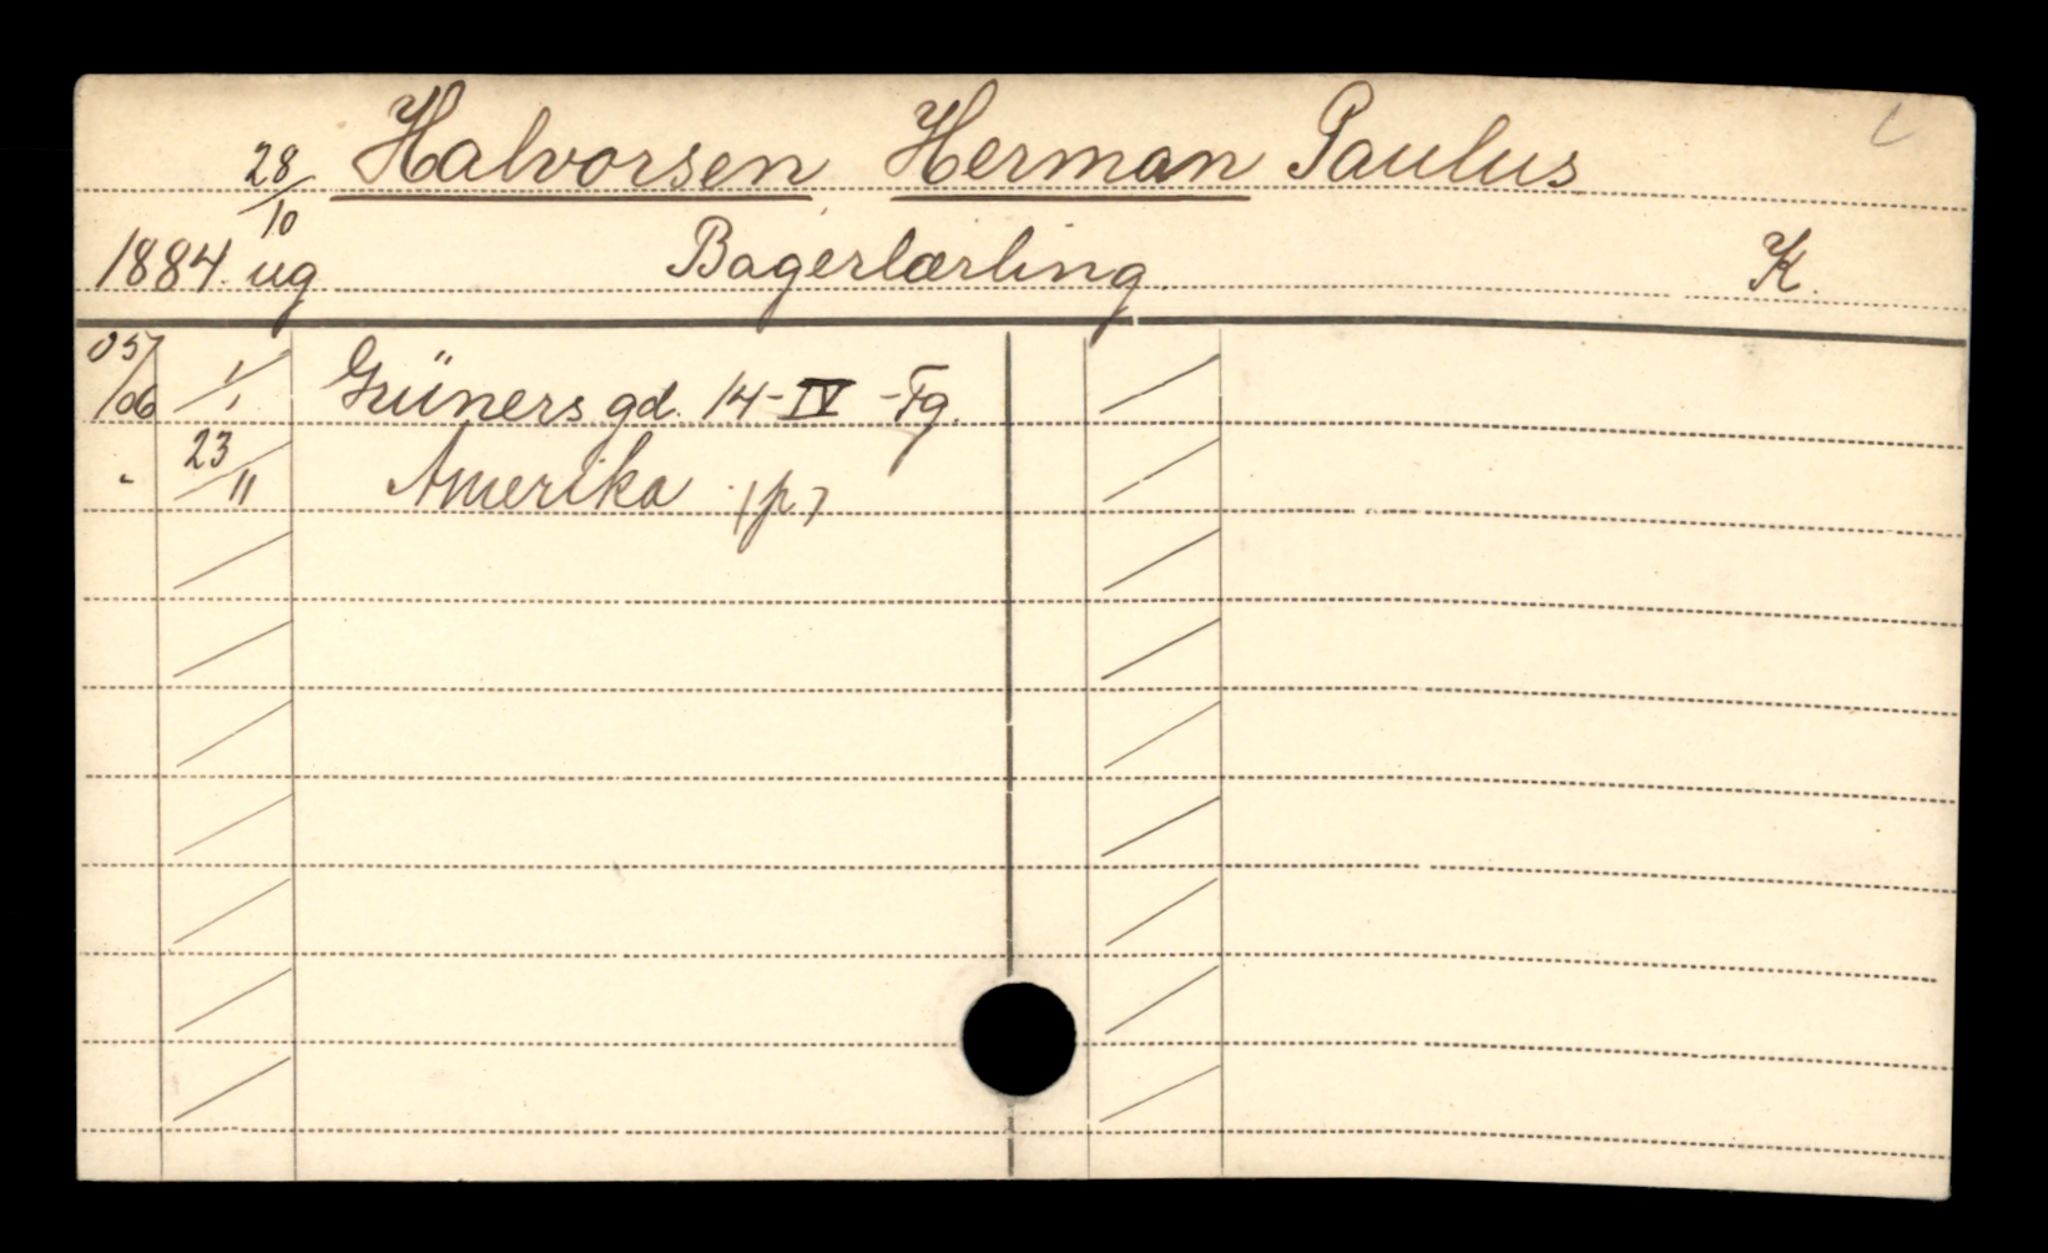 28/10 Halvorsen, Herman Paulus
1884. ug Bagerlærling. K.
05/06 1/1 Grüners gd. 14-IV-Fg.
" 23/11 Amerika (p)